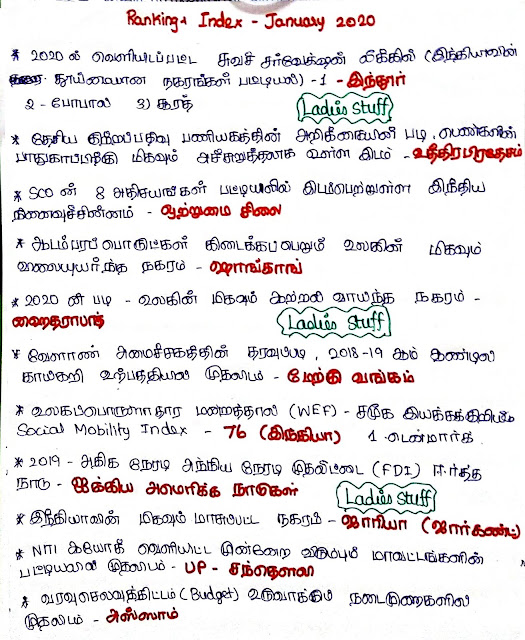 Ranking & Index - January 2020
* 2020 ல் வெளியிடப்பட்ட சுவச் சர்வேக்ஷன் லீக்கில் (இந்தியாவின்
தூய்மையான நகரங்கள் பட்டியல்) - 1 - இந்தூர்
2 - போபால் 3) சூரத்
Ladies Stuff
* தேசிய குற்றப்பதிவு பணியகத்தின் அறிக்கையின் படி, பெண்களின்
பாதுகாப்பிற்கு மிகவும் அச்சுறுத்தலாக உள்ள இடம் - உத்திரபிரதேசம்
* SCO ன் 8 அதிசயங்கள் பட்டியலில் இடம்பெற்றுள்ள இந்திய
நினைவுச்சின்னம் - ஒற்றுமை சிலை
* ஆடம்பரப் பொருட்கள் கிடைக்கப்பெறும் உலகின் மிகவும்
விலையுயர்ந்த நகரம் - ஹாங்காங்
* 2020 ன் படி - உலகின் மிகவும் ஆற்றல் வாய்ந்த நகரம் -
ஹைதராபாத்
Ladies Stuff
* வேளாண் அமைச்சகத்தின் தரவுப்படி, 2018-19 ஆம் ஆண்டில்
காய்கறி உற்பத்தியில் முதலிடம் - மேற்கு வங்கம்
* உலகப்பொருளாதார மன்றத்தால் (WEF) - சமூக இயக்கக்குறியீடு
Social Mobility Index - 76 (இந்தியா) 1. டென்மார்க்
* 2019 - அதிக நேரடி அந்நிய நேரடி முதலீட்டை (FDI) ஈர்த்த
நாடு - ஐக்கிய அமெரிக்க நாடுகள்
Ladies Stuff
* இந்தியாவின் மிகவும் மாசுபட்ட நகரம் - ஜாரியா (ஜார்கண்ட்)
* NITI ஆயோக் வெளியிட்ட முன்னேற விரும்பும் மாவட்டங்களின்
பட்டியலில் முதலிடம் - UP - சந்தௌலி
* வரவுசெலவுத்திட்டம் (Budget) உருவாக்கும் நடைமுறைகளில்
முதலிடம் - அஸ்ஸாம்